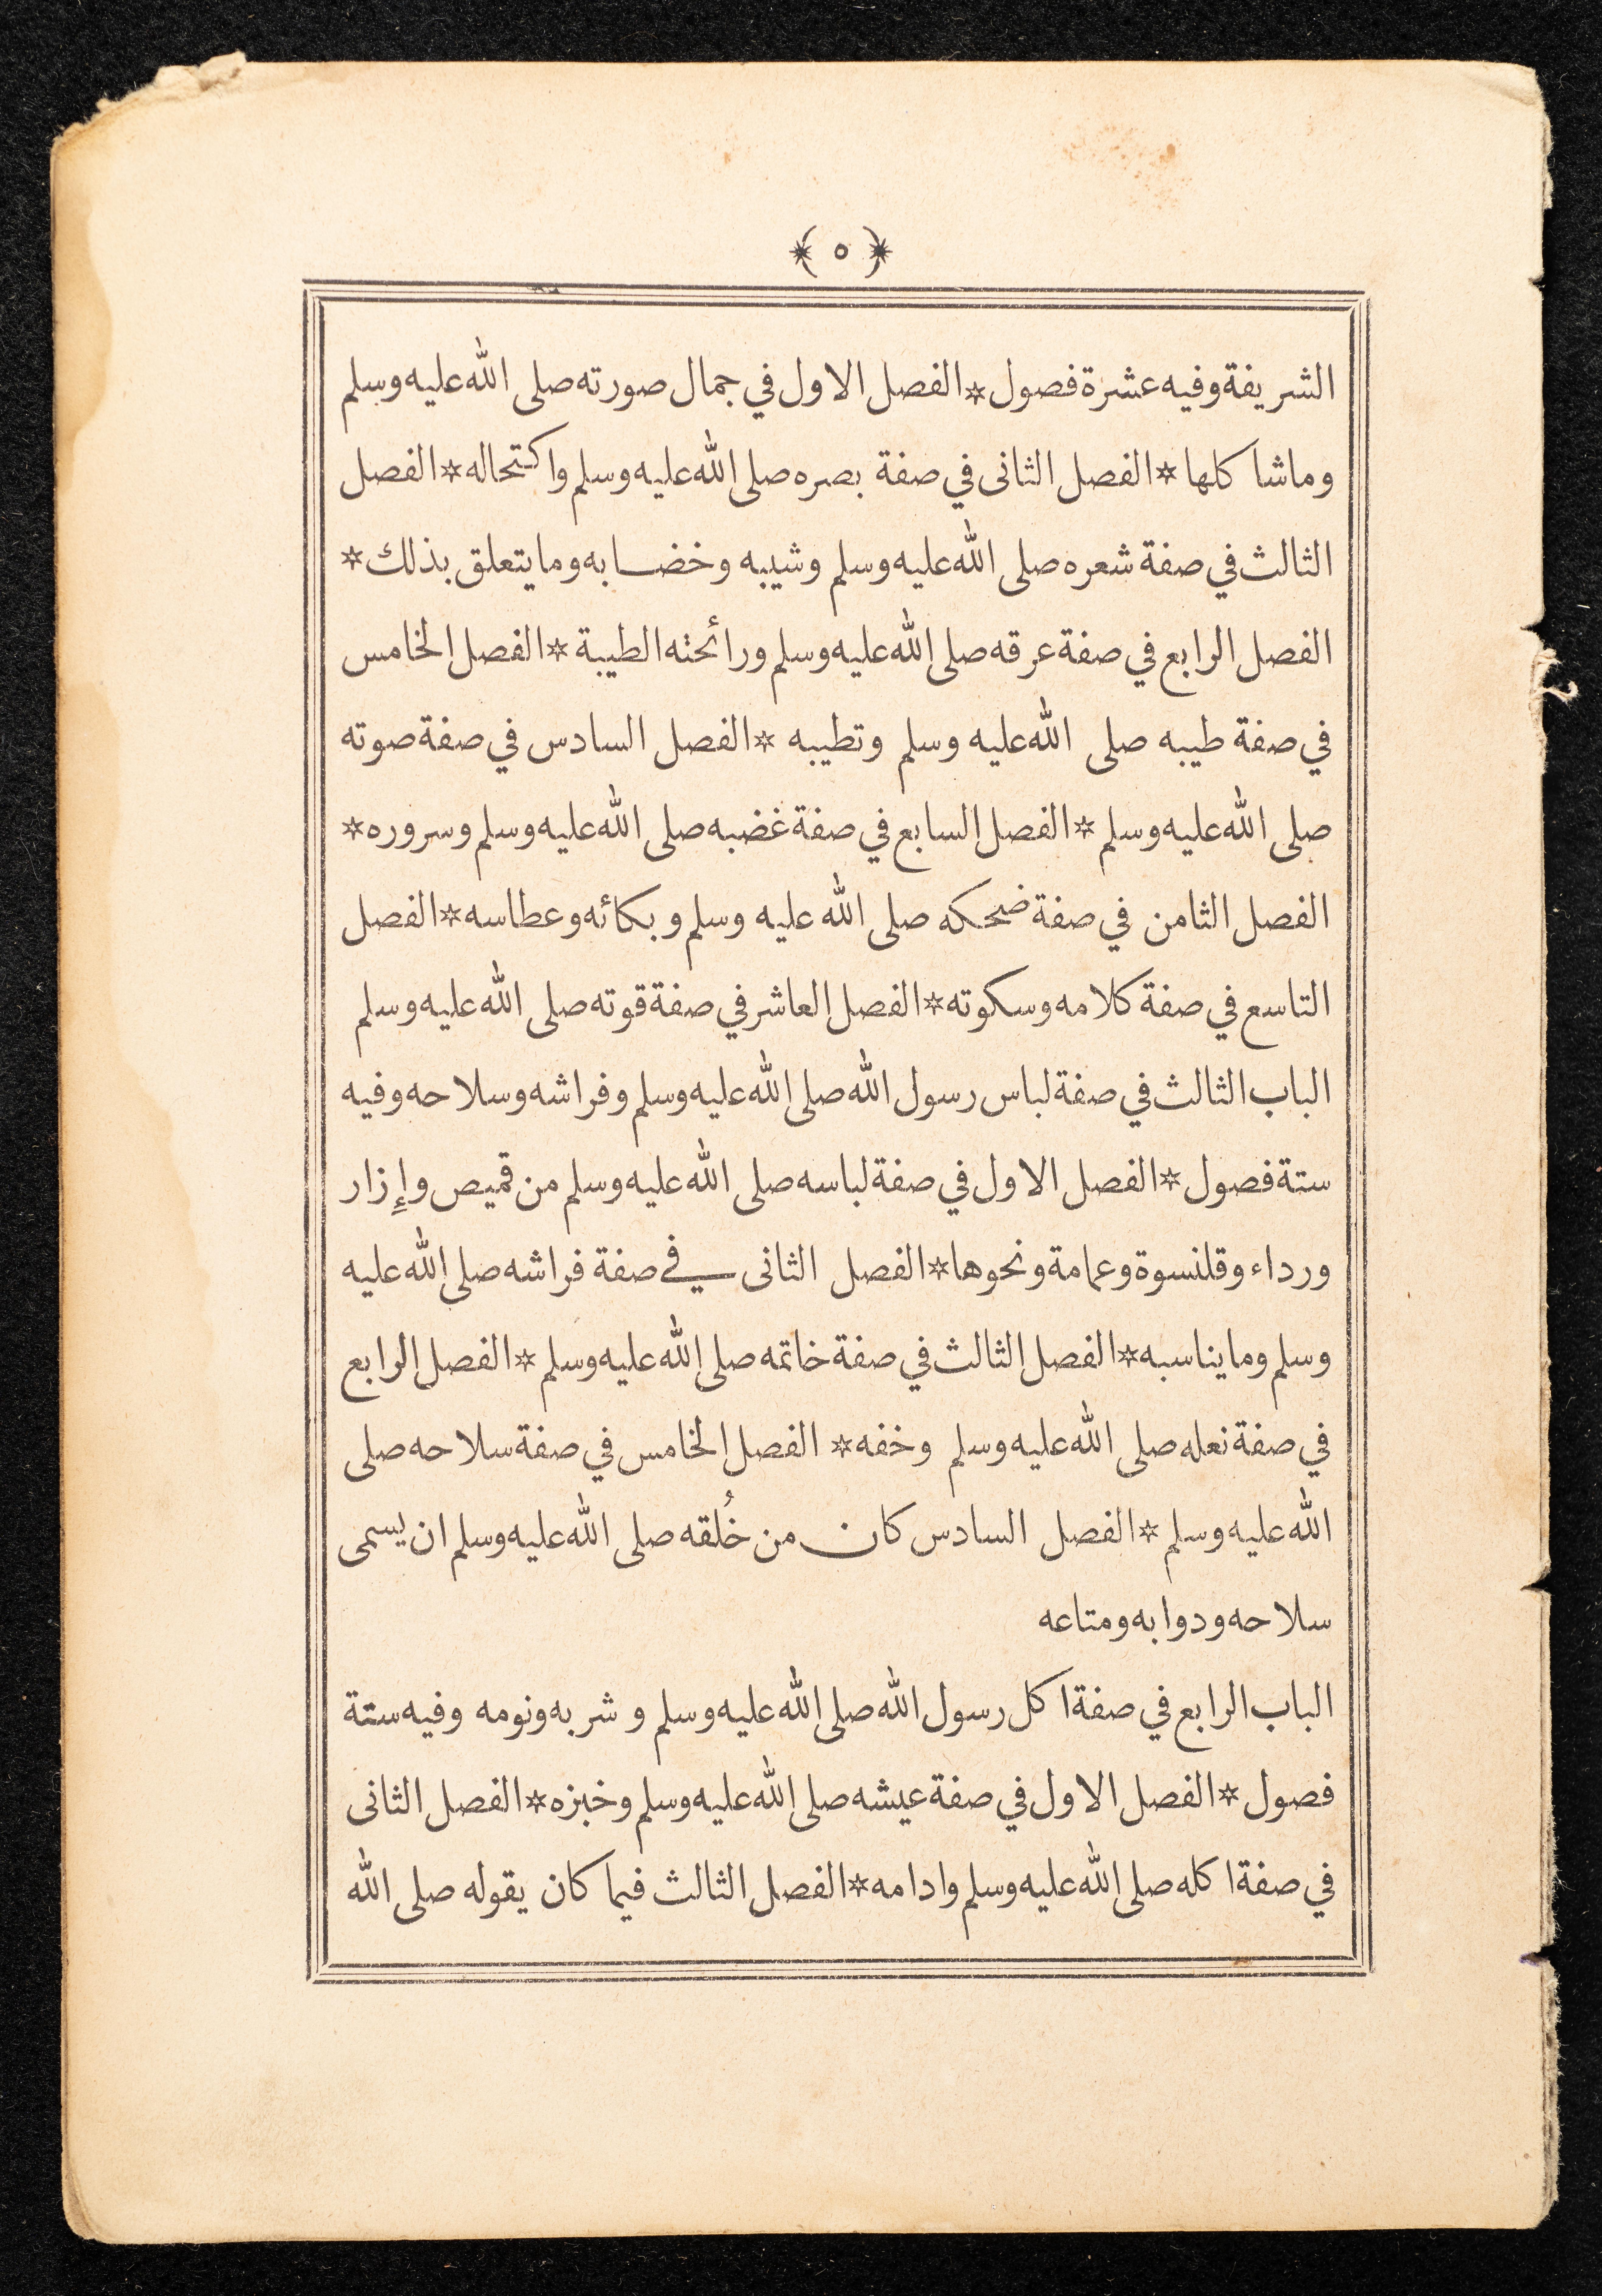 ﴿ ٥ ﴾
الشريفة وفيه عشرة فصول * الفصل الاول في جمال صورته صلى الله عليه وسلم
وما شاكلها * الفصل الثانى في صفة بصره صلى الله عليه وسلم واكتحاله * الفصل
الثالث في صفة شعره صلى الله عليه وسلم وشيبه وخضابه وما يتعلق بذلك *
الفصل الرابع في صفة عرقه صلى الله عليه وسلم ورائحته الطيبة * الفصل الخامس
في صفة طيبه صلى الله عليه وسلم وتطيبه * الفصل السادس في صفة صوته
صلى الله عليه وسلم * الفصل السابع في صفة غضبه صلى الله عليه وسلم وسروره *
الفصل الثامن في صفة ضحكه صلى الله عليه وسلم وبكائه وعطاسه * الفصل
التاسع في صفة كلامه وسكوته * الفصل العاشر في صفة قوته صلى الله عليه وسلم
الباب الثالث في صفة لباس رسول الله صلى الله عليه وسلم وفراشه وسلاحه وفيه
ستة فصول * الفصل الاول في صفة لباسه صلى الله عليه وسلم من قميص وإزار
ورداء وقلنسوة وعمامة ونحوها * الفصل الثانى في صفة فراشه صلى الله عليه
وسلم وما يناسبه * الفصل الثالث في صفة خاتمه صلى الله عليه وسلم * الفصل الرابع
في صفة نعله صلى الله عليه وسلم وخفه * الفصل الخامس في صفة سلاحه صلى
الله عليه وسلم * الفصل السادس كان من خُلقه صلى الله عليه وسلم ان يسمى
سلاحه ودوابه ومتاعه
الباب الرابع في صفة اكل رسول الله صلى الله عليه وسلم وشربه ونومه وفيه ستة
فصول * الفصل الاول في صفة عيشه صلى الله عليه وسلم وخبزه * الفصل الثانى
في صفة اكله صلى الله عليه وسلم وادامه * الفصل الثالث فيما كان يقوله صلى الله